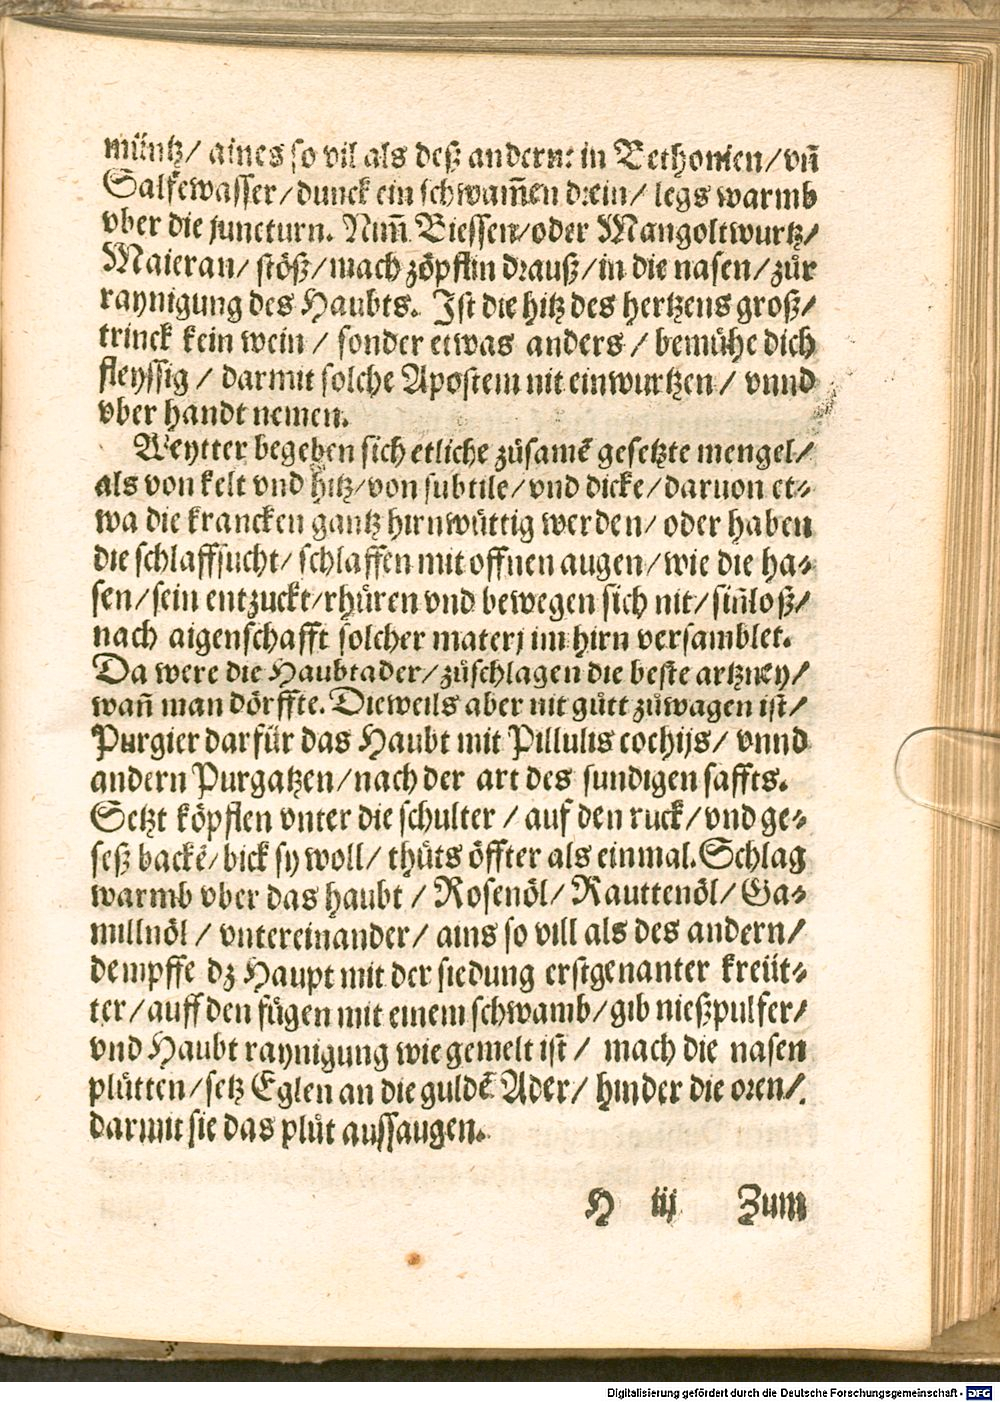 müntz/ aines so vil als deß andern: in Bethonien/ vñ
Salfewasser/ dunck ein schwam̃en drein/ legs warmb
vber die juncturn. Nim̃ Biessen/ oder Mangoltwurtz/
Maieran/ stöß/ mach zöpflin drauß/ in die nasen/ zůr
raynigung des Haubts. Ist die hitz des hertzens groß/
trinck kein wein / sonder etwas anders / bemühe dich
fleyssig / darmit solche Apostem nit einwurtzen / vnnd
vber handt nemen.
Weytter begeben sich etliche zůsamẽ gesetzte mengel/
als von kelt vnd hitz/ von subtile/ vnd dicke/ daruon et-
wa die krancken gantz hirnwüttig werden/ oder haben
die schlaffsucht/ schlaffen mit offnen augen/ wie die ha-
sen/ sein entzuckt/ rhüren vnd bewegen sich nit/ siñloß/
nach aigenschafft solcher materj im hirn versamblet.
Da were die Haubtader/ zůschlagen die beste artzney/
wañ man dörffte. Dieweils aber nit gůtt zůwagen ist/
Purgier darfür das Haubt mit Pillulis cochijs/ vnnd
andern Purgatzen/ nach der art des sundigen saffts.
Setzt köpflen vnter die schulter / auf den ruck/ vnd ge-
seß backẽ/ bick sy woll/ thůts öffter als einmal. Schlag
warmb vber das haubt / Rosenöl/ Rauttenöl/ Ga-
millnöl / vntereinander/ ains so vill als des andern/
dempffe dz Haupt mit der siedung erstgenanter kreüt-
ter/ auff den fůgen mit einem schwamb/ gib nießpulfer/
vnd Haubt raynigung wie gemelt ist / mach die nasen
plůtten/ setz Eglen an die guldẽ Ader/ hinder die oren/.
darmit sie das plůt aussaugen.
H iij Zum
Digitalisierung gefördert durch die Deutsche Forschungsgemeinschaft - DFG